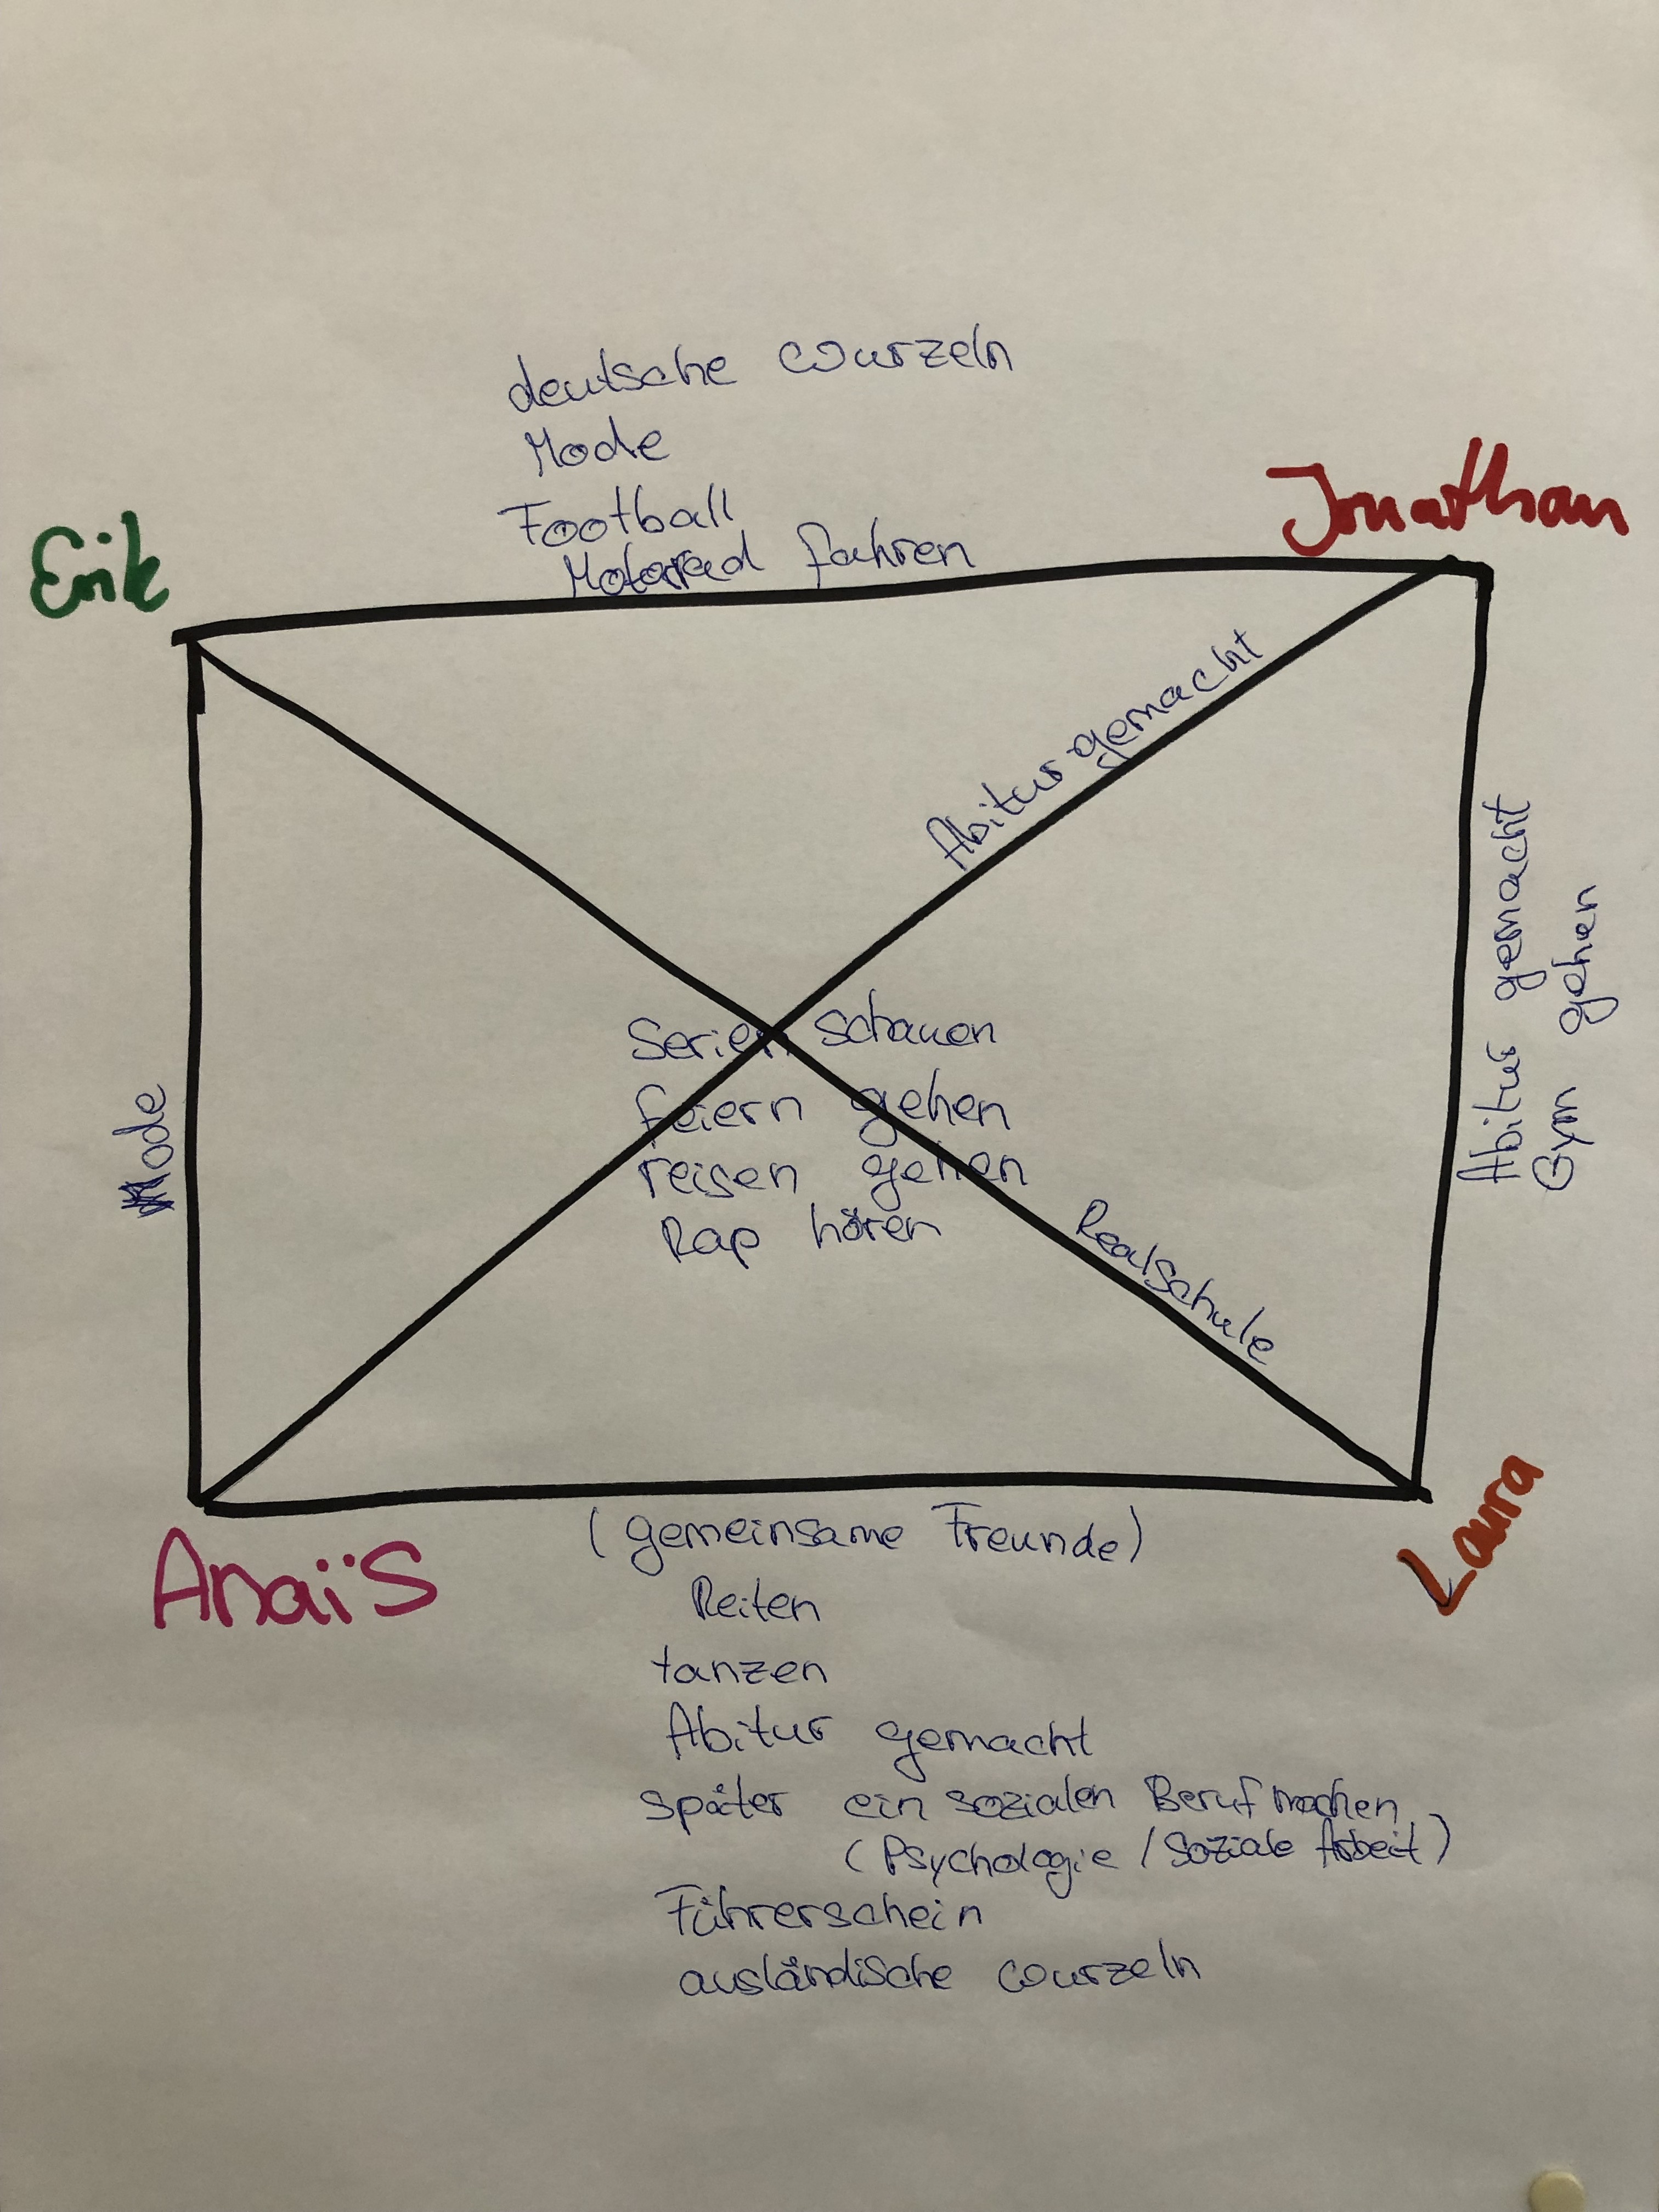 deutsche Wurzeln
Mode
Football
Motorrad fahren
Erik
Jonathan
Abitur gemacht
Abitur gemacht
Gym gehen
Serien schauen
feiern gehen
reisen gehen
Rap hören
Mode
Realschule
Anaïs
Laura
(gemeinsame Freunde)
Reiten
tanzen
Abitur gemacht
später ein sozialen Beruf machen
(Psychologie / Soziale Arbeit)
Führerschein
ausländische Wurzeln